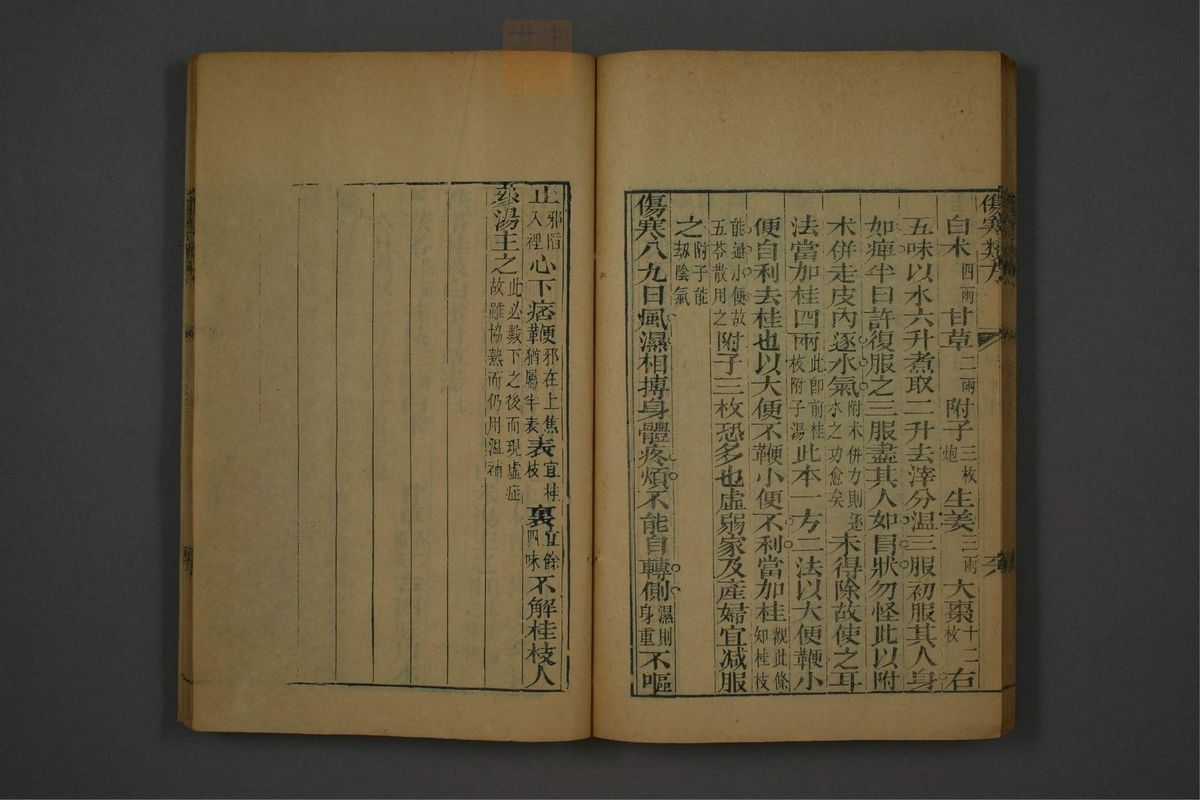 傷寒類方
白术四兩甘草二兩附子三枚炮生姜三兩大棗十二枚右
五味以水六升煮取二升去滓分溫三服初服其人身
如痺半日許復服之三服盡其人如冒狀勿怪此以附
术併走皮內逐水氣附术併力則逐水之功愈矣未得除故使之耳
法當加桂四兩此卽前桂枝附子湯此本一方二法以大便鞕小
便自利去桂也以大便不鞕小便不利當加桂觀此條知桂枝
能通小便故五苓散用之附子三枚恐多也虛弱家及產婦宜減服
之附子能刼陰氣
傷寒八九日風濕相摶身體疼煩不能自轉側濕則身重不嘔
止邪陷入裡心下痞鞕邪在上焦猶屬半表表宜桂枝裏宜餘四味不解桂枝人
參湯主之此必數下之後而現虛症故雖協熱而仍用溫補